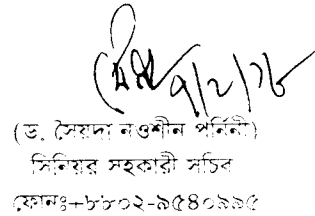 ৭/২/১৮
(ড. সৈয়দা নওশীন পর্নিনী)
সিনিয়র সহকারী সচিব
ফোনঃ+৮৮০২-৯৫৪০৯৯৫